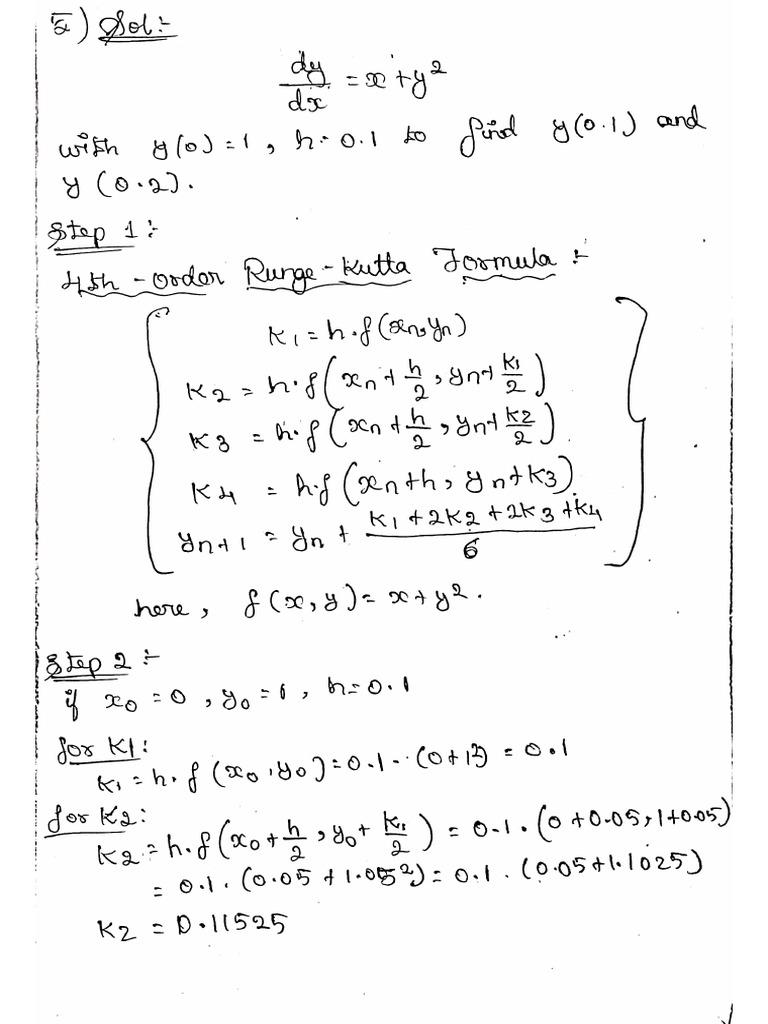 5) Sol:-
dy/dx = x + y²
with y(0)=1, h=0.1 to find y(0.1) and
y(0.2).
Step 1:-
4th-order Runge-Kutta Formula:-
K1 = h.f(xn, yn)
K2 = h.f(xn + h/2, yn + K1/2)
K3 = h.f(xn + h/2, yn + K2/2).
K4 = h.f(xn+h, yn+K3).
yn+1 = yn + (K1+2K2+2K3+K4)/6
here, f(x,y) = x+y².
Step 2:-
if x0=0, y0=1, h=0.1
for K1:
K1 = h.f(x0,y0) = 0.1.(0+1²) = 0.1
for K2:
K2 = h.f(x0 + h/2, y0 + K1/2) = 0.1.(0+0.05, 1+0.05)
= 0.1.(0.05+1.05²) = 0.1.(0.05+1.1025)
K2 = 0.11525